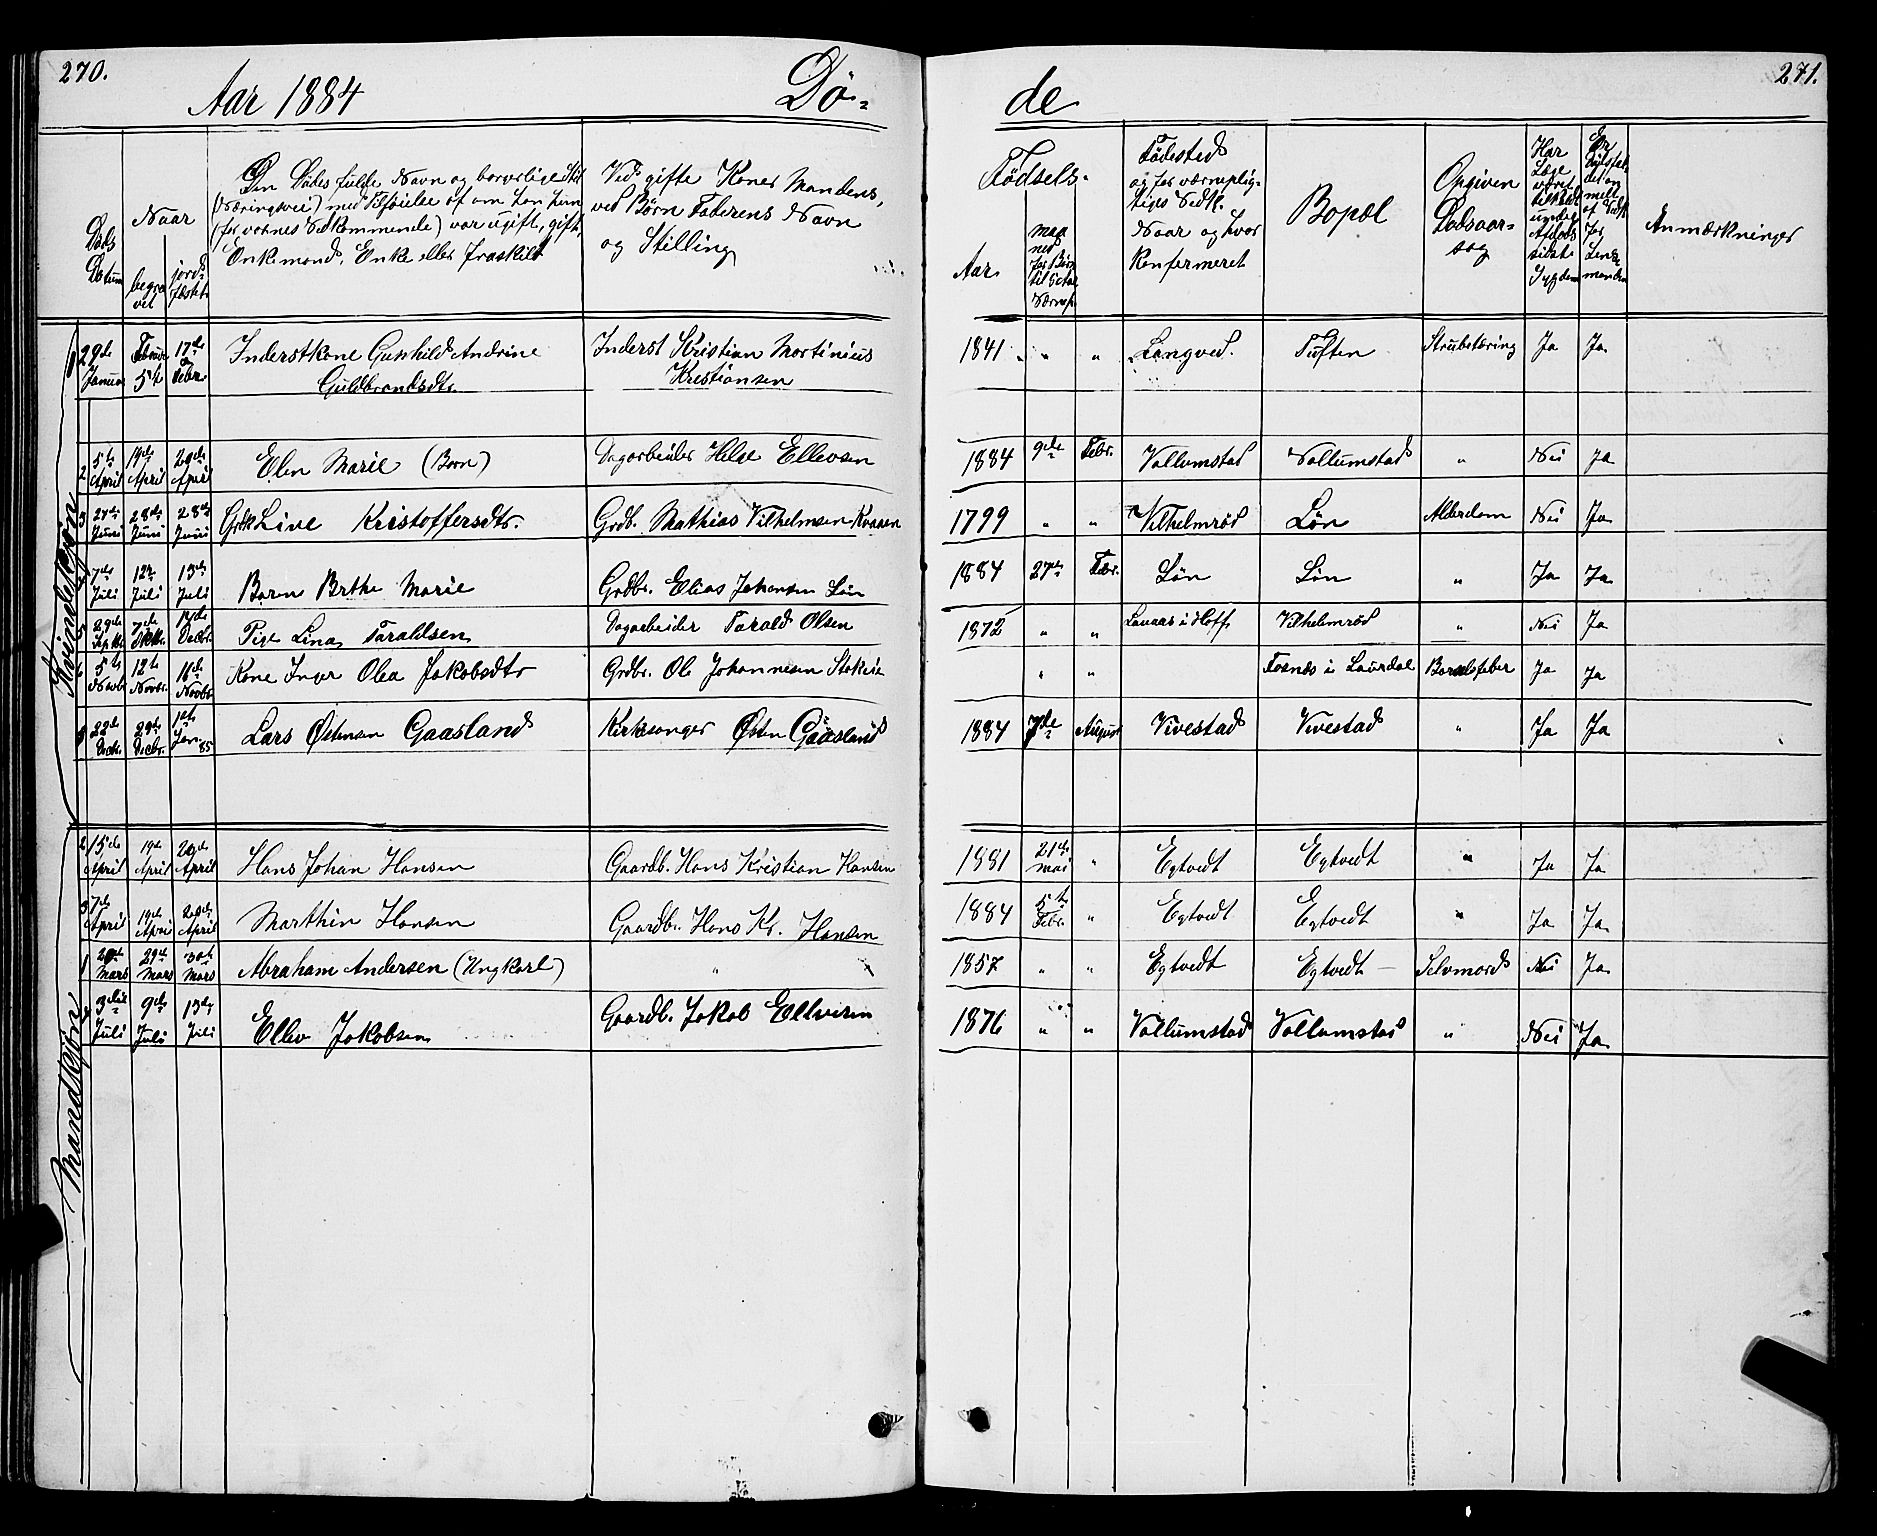 270.
Aar 1884
Dø-
de
271.
Døds
Datum
Naar
begra
vet
jords
fæstet
Den Dødes fulde Navn og borgerlige Stil
(Næringsvei) med Tilføielse af om han, hun
(for voxnes Vedkommende) var ugift, gift,
Enkemand, Enke eller fraskilt
Ved gifte Koner Mandens,
ved Børn Faderens Navn
og Stilling
Fødsels-
Aar
Fødested
og for værneplig-
tiges Vedk.
Naar og hvor
Konfermeret
Bopæl
Opgiven
Dødsaar-
sag
Har
Læge
været
tilkaldt
under
Afdødes
sidste
Sygdom
Er
Dødsfal-
det an
meldt
af Vedk
for
Lens-
manden
Anmærkninger
Kvindekjøn
1 29de Januar Februar 5t 17de Febr. Inderstkone Gunhild Andrine Guldbrandsdtr. Inderst Kristian Martinius Kristiansen 1841 " " Langved. Tuften Strubetæring Ja Ja
2 5te April 19de April 20de April Elen Marie (Barn) Dagarbeider Helge Ellevsen 1884 9de Febr. Vallumstad Vallumstad " Nei Ja
3 24de Juni 28de Juni 28de Juni Grdk Live Kristoffersdtr. Grdb. Mathias Vilhelmsen Kvaasen 1799 " " Vilhelmrød Løn Alderdom Nei Ja
7de Juli 12te Juli 13de Juli Barn Brthe Marie Grdbr. Elias Johansen Løn 1884 27de Febr. Løn Løn " Ja Ja
5 29de Septbr. 7de Oktbr. Decbr. Pige Lina Taraldsen Dagarbeider Tarald Olsen 1872 " " i Hoff Vilhelmrød " Nei Ja
5te Novbr. 12te Novbr. 16de Novbr. Kone Inger Olea Jakobsdtr Grdbr. Ole Johannesen " " Fosnæs i Laurdal Barselfeber Ja Ja
22de Decbr. 29de Decbr. 1ste Jan. 85 Lars Østensen Gaasland Kirkesanger Østen Gaasland 1884 7de August Vivestad Vivestad " Ja Ja
Mandkjøn
2 15de April 19de April 20de April Hans Johan Hansen Gaardb. Hans Kristian Hansen 1881 21de Mai " Egtvedt Egtvedt " Ja Ja
3 7de April 19de April 20de April Marthin Hansen Gaardbr. Hans Kr. Hansen 1884 5te Febr. " Egtvedt Egtvedt " Ja Ja
1 20de Mars 29de Mars 30te Mars Abraham Andersen (Ungkarl) " 1857 " " Egtvedt Egtvedt — Selvmord Nei Ja
3die Juli 9de Juli 13de Juli Ellev Jakobsen Gaardb. Jakob Ellevsen 1876 " " Vallumstad Vallumstad " Nei Ja